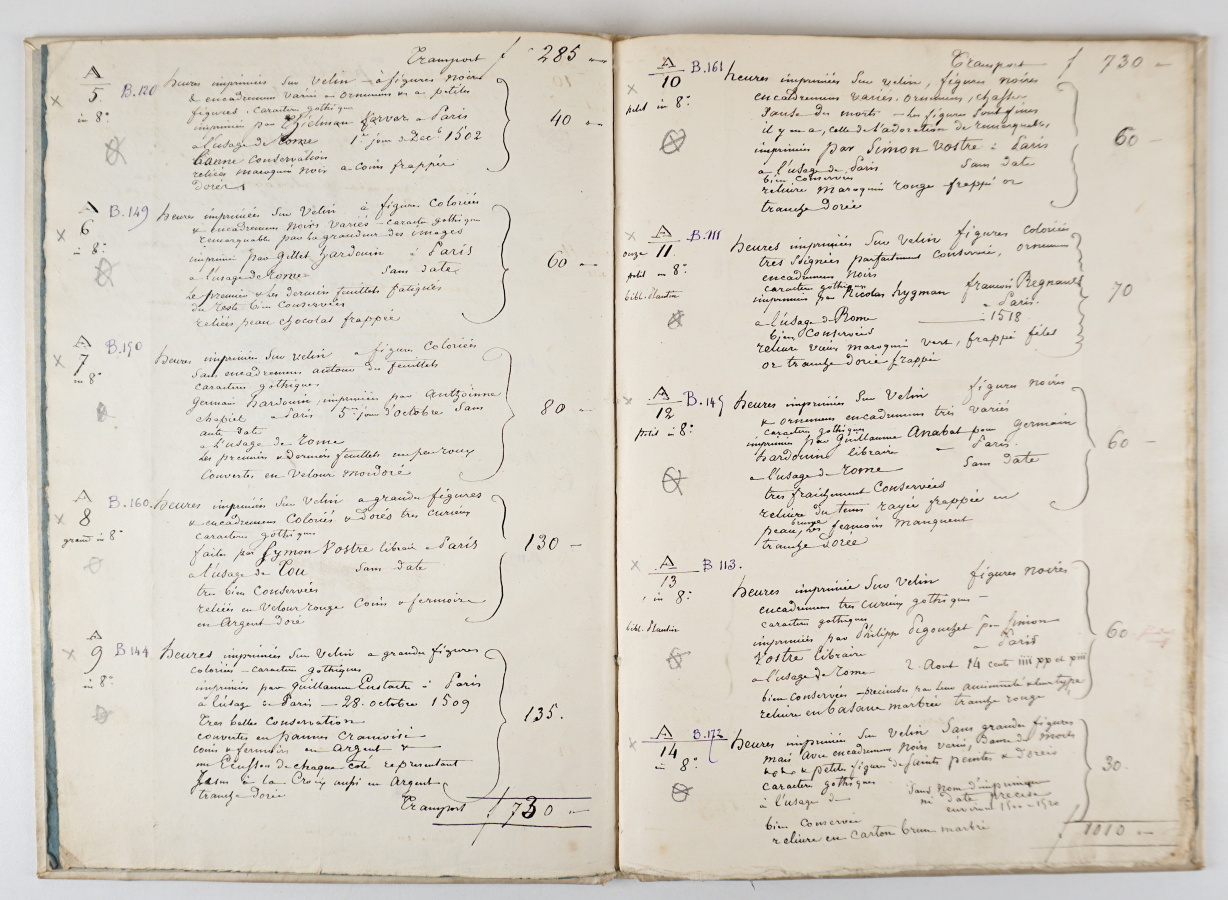 Transport f 285 —
A
5. B.120 heures imprimées sur velin – à figures noires
in 8° & encadremens variés & ornemens & a petites
figures. caractere gothique
imprimées par Thielman Kerver a Paris 40 —
a l'usage de Rome 1er jour de Decbr 1502
bonne conservation
reliées maroquin noir a coins frappés
dorés
A
6 B.149 heures imprimées sur velin à figures coloriées
in 8° & encadremens noirs variés – caractere gothique
remarquable par la grandeur des images
imprimé par Gillet hardouin à Paris 60 —
a l'usage de Rome sans date
le premier & les derniers feuillets fatigués
du reste bien conservées
reliées, peau chocolat frappée
A
7 B.190 heures imprimées sur velin a figures coloriées
in 8° sans encadremens autour des feuillets
caractere gothiques
Germain hardouin, imprimées par Anthoinne
chapiel a Paris 5me jour d'octobre sans 80 —
autre date
a l'usage de rome
les premiers & derniers feuillets un peu roux
couvertes en velour mordoré
A
8 B.160. heures imprimées sur velin a grandes figures
grand in 8° & encadremens coloriés & dorés tres curieux
caractere gothiques
faites par Symon Vostre libraire a Paris 130 —
a l'usage de Tou sans date
tres bien conservées
reliées en velour rouge coins & fermoirs
en argent doré
A
9 B 144 heures imprimées sur velin a grandes figures
in 8° coloriées – caractere gothiques
imprimées par Guillaume Eustache à Paris
à l'usage de Paris – 28. octobre 1509 135.
Tres belle conservation
couvertes en pannes cramoisie
coins & fermoirs en argent &
un Ecusson de chaque coté representant
Jesus à la Croix aussi en argent
tranche dorée
Transport f 730 —
Transport f 730 —
A
10 B.161 heures imprimées sur velin, figures noires
petit in 8° encadremens variés. ornemens, chasses
danse des morts — les figures sont fines
il y en a, celle de l'adoration de remarquable, 60 —
imprimées par Simon Vostre à Paris
a l'usage de Paris sans date
bien conservées
reliure maroquin rouge frappé or
tranche dorée
A
11. B.111 heures imprimées sur velin figures coloriées
onze tres soignées parfaitement conservées, ornemens
petit in 8° encadremens noirs
caractere gothiques
bibl. Plantin imprimées par Nicolas hygman francois Regnault 70
a Paris.
a l'usage de Rome — 1518
bien conservées
reliure vieux maroquin vert, frappé filets
or tranche dorée frappée
A
12 B.145 heures imprimées sur velin figures noires
petit in 8° & ornemens encadremens tres variés
caractere gothiques
imprimées par Guillaume Anabat pour Germain 60 —
hardouin libraire a Paris.
a l'usage de rome sans date
tres fraichement conservées
reliure du tems rayée frappée en
peau brune, les fermoirs manquent
tranche dorée
A
13 B 113. heures imprimées sur velin figures noires
in 8° encadremens tres curieux gothiques –
caractere gothiques
bibl. Plantin imprimées par Philippe Pigouchet pour Simon 60
Vostre libraire a Paris
a l'usage de rome 2. Aout 14 cent iiii xx et xiii
bien conservées – precieuses par leur ancienneté & leur type
reliure en basane marbrée tranche rouge
A
14 B.172 heures imprimées sur velin sans grandes figures
in 8° mais avec encadremens noirs variés, danse des morts
& petites figures de saints peintes & dorées 30.
caractere gothiques sans nom d'imprimeur
à l'usage de ni date precise
environ 1500 – 1520
bien conservée
reliure en carton brun marbré
f 1010 —